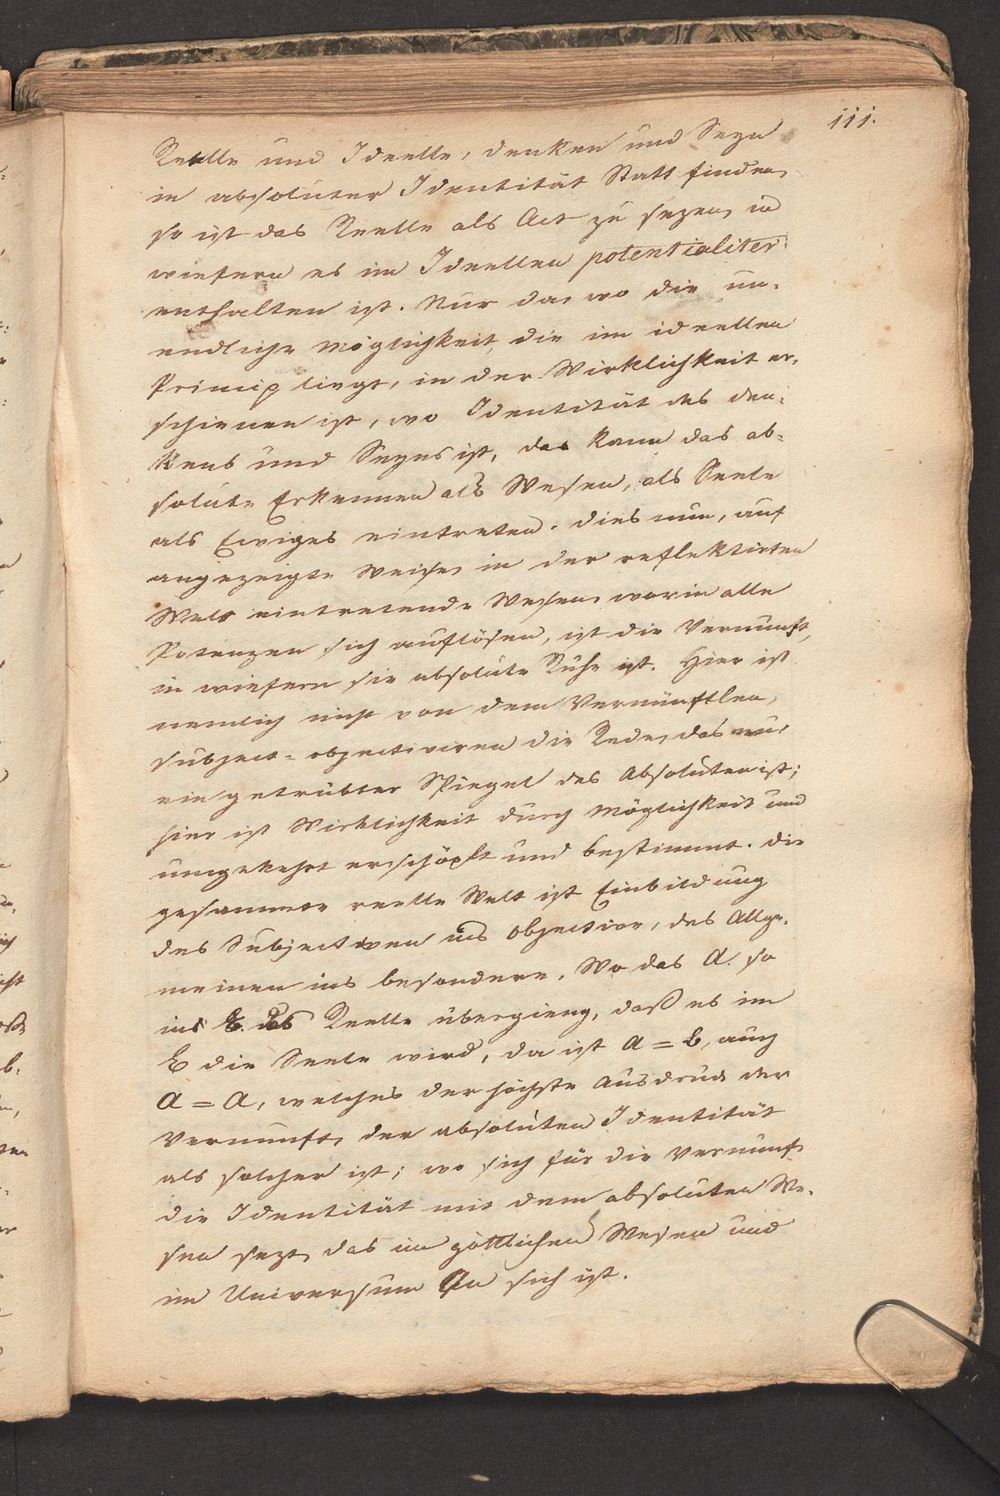 111.
Reelle und Ideelle, denken und Seyn
in absoluter Identität Statt finden,
so ist das Reelle als Act zu sezen, in
wiefern es im Ideellen potentialiter
enthalten ist. Nur da, wo die un-
endliche Möglichkeit, die im ideellen
Princip liegt, in der Wirklichkeit er-
schienen ist, wo Identität des den-
kens und Seyns ist, da kann das ab-
solute Erkennen als Wesen, als Seele
als Ewiges eintreten. Dies nun, auf
angezeigte Weise, in der reflektirten
Welt eintretende Wesen, worin alle
Potenzen sich auflösen, ist die Vernunft,
in wiefern sie absolute Ruhe ist. Hier ist
nemlich nicht von dem Vernünftlen,
subject-objectiviren die Rede, das nur
ein getrübter Spiegel des Absoluten ist;
hier ist Wirklichkeit durch Möglichkeit und
umgekehrt erschöpft und bestimmt. Die
gesammte reelle Welt ist Einbildung
des Subjectiven ins objective, des Allge-
meinen ins besondere. Wo das A. so
ins B. das Reelle übergieng, daß es im
B die Seele wird, da ist A = B, auch
A = A, welches der höchste Ausdruck der
Vernunft, der absoluten Identität
als solcher ist; wo sich für die Vernunft
die Identität mit dem absoluten We-
sen sezt, das im göttlichen Wesen und
im Universum An sich ist.